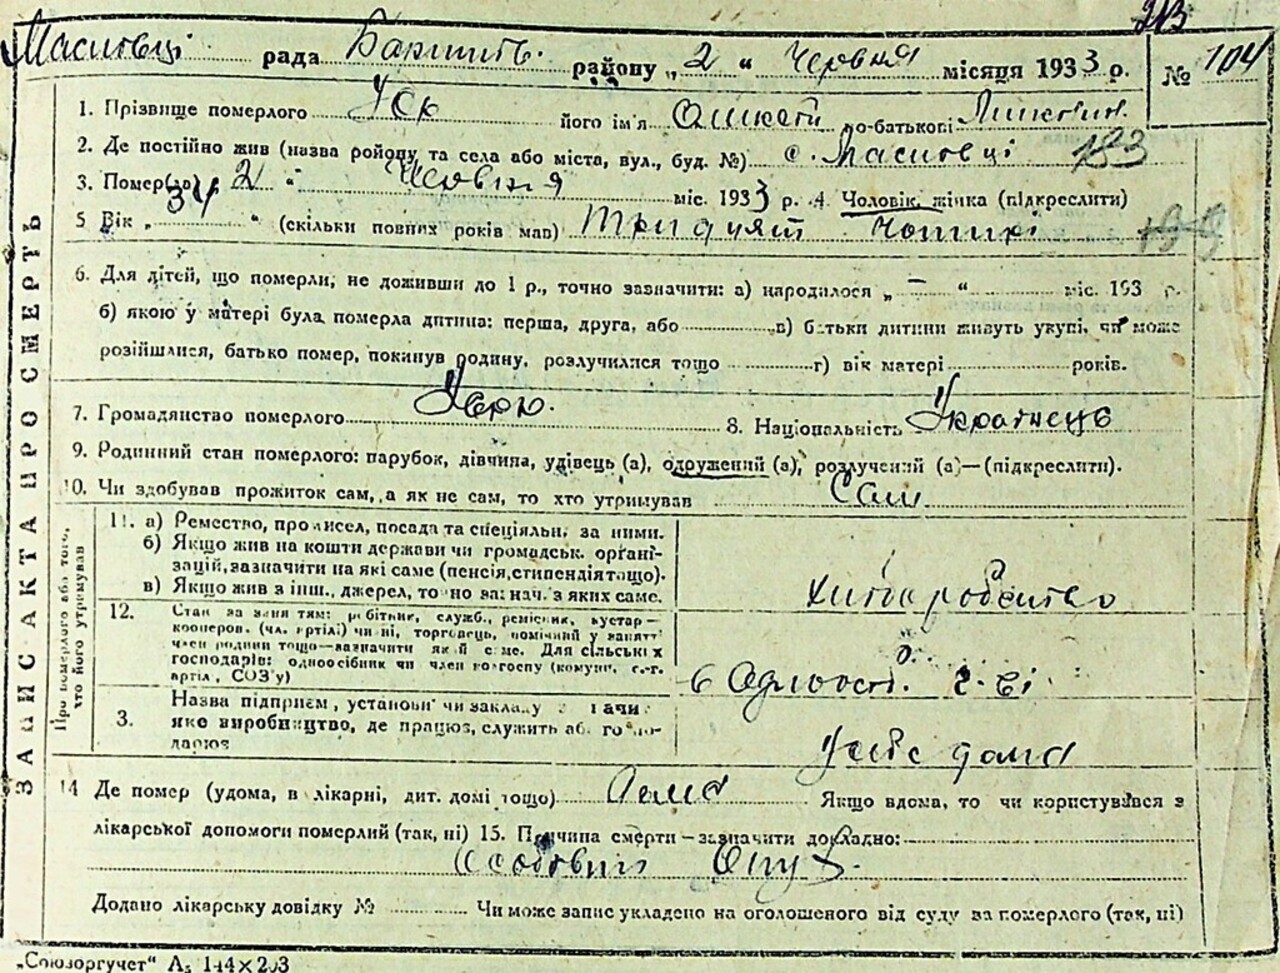 213
Масиовці рада району „2“ Червня місяця 1933 р. № 104
1. Прізвище померлого Уск його ім'я по-батькові
2. Де постійно жив (назва району та села або міста, вул., буд. №) с. Масиовці 183
3. Помер(ла) „2“ Червня міс. 1933 р. 4. Чоловік, жінка (підкреслити)
5 Вік „34“ (скільки повних років мав) тридцят чотирі
6. Для дітей, що померли, не доживши до 1 р., точно зазначити: а) народилося „ – “ міс. 193 р.
б) якою у матері була померла дитина: перша, друга, або в) батьки дитини живуть укупі, чи може
розійшлися, батько помер, покинув родину, розлучилися тощо г) вік матері років.
7. Громадянство померлого 8. Національність Українець
9. Родинний стан померлого: парубок, дівчина, удівець (а), одружений (а), розлучений (а)—(підкреслити).
10. Чи здобував прожиток сам, а як не сам, то хто утримував Сам
ЗАПИС АКТА ПРО СМЕРТЬ
Про померлого або того, хто його утримував
11. а) Ремество, промисел, посада та спеціяльн. за ними.
б) Якщо жив на кошти держави чи громадськ. органі-
зацій, зазначити на які саме (пенсія, стипендія тощо).
в) Якщо жив з інш. джерел, точно зазнач. з яких саме.
хліборобство
12. Стан за заняттям: робітник, служб., ремісник, кустар—
кооперов. (чл. артілі) чи ні, торговець, помічний у занятті
член родини тощо—зазначити який саме. Для сільських
господарів: одноосібник чи член колгоспу (комуни, с.-г.
артіл, СОЗ'у)
3. Назва підприєм, установи чи закладу
яке виробництво, де працює, служить або госпо-
дарює
У себе дома
14 Де помер (удома, в лікарні, дит. домі тощо) Якщо вдома, то чи користувався з
лікарської допомоги померлий (так, ні) 15. Причина смерти—зазначити докладно:
Додано лікарську довідку № Чи може запис укладено на оголошеного від суду за померлого (так, ні)
„Союзоргучет“ А₅ 144×203